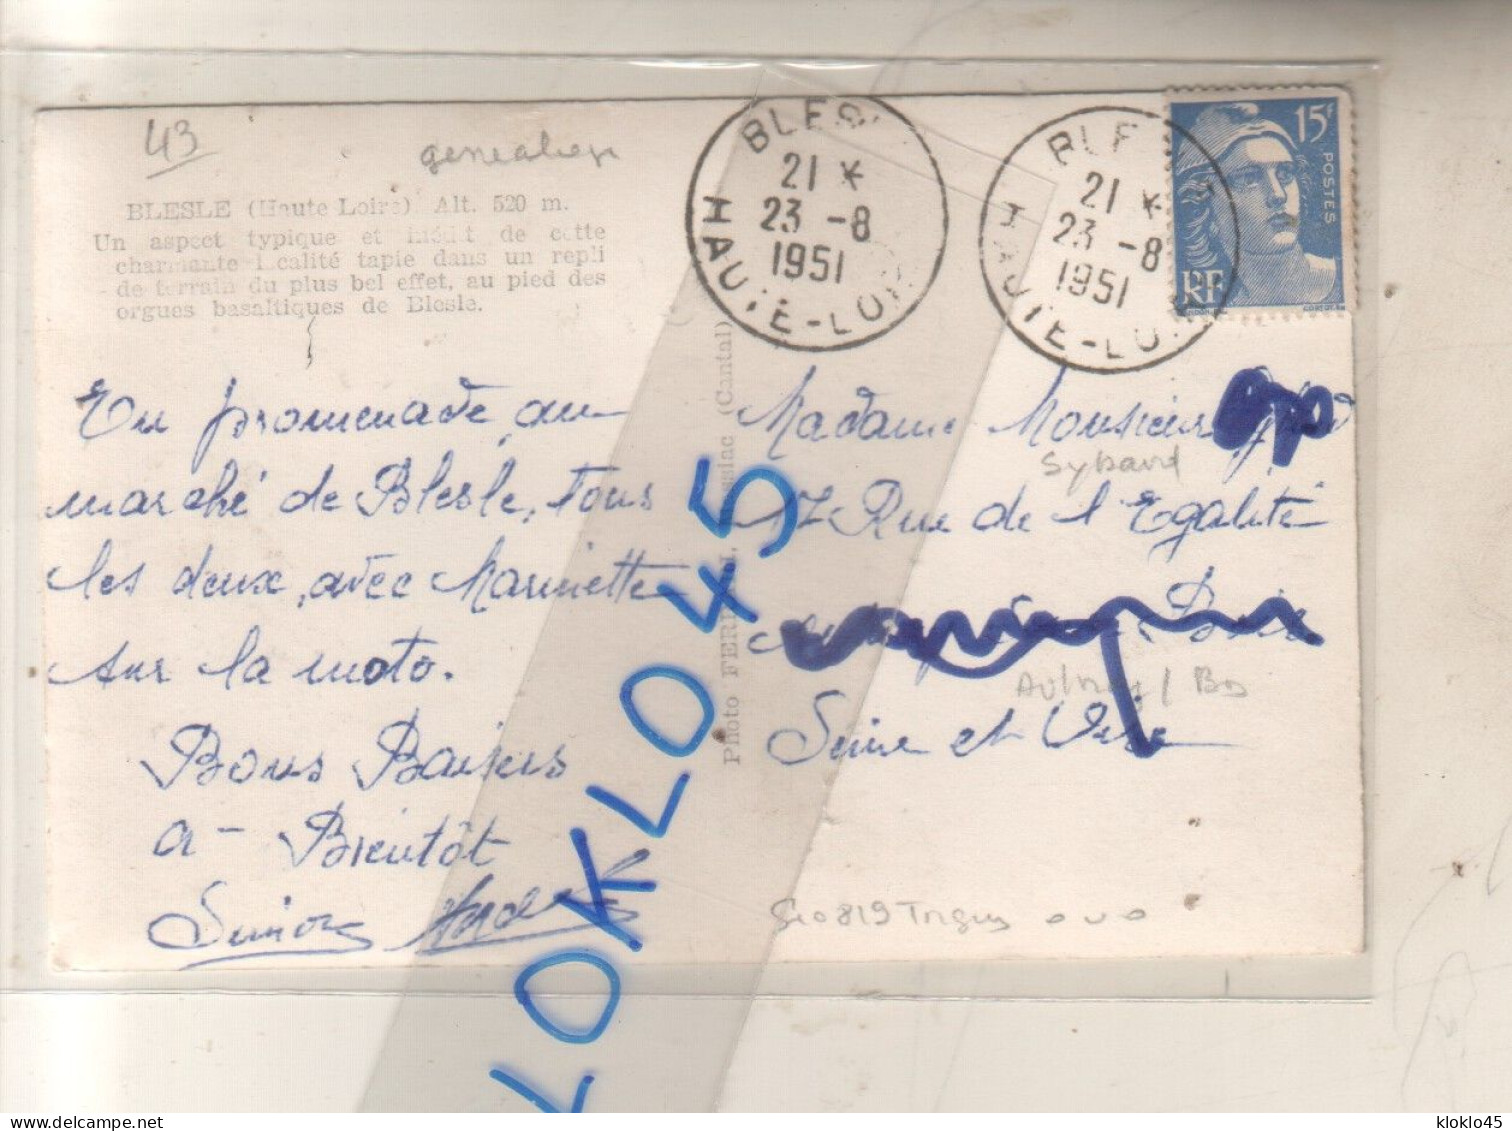 43
genealogie
BLESLE (Haute Loire) Alt. 520 m.
Un aspect typique et inédit de cette
charmante localité tapie dans un repli
de terrain du plus bel effet, au pied des
orgues basaltiques de Blesle.
BLESL
21 *
23 -8
1951
HAUTE-LOIR
BLE
21 *
23 -8
1951
HAUTE-LOI
15F
POSTES
RF
En promenade, au
marché de Blesle, tous
les deux, avec Marinette
sur la moto.
Bons Baisers
a - Bientôt
Photo (Cantal)
Madame Monsieur
Sybard
17 Rue de l'Egalité
Bois
Aulnay / Bois
Seine et Oise
819
KLOKLO 45
Copyright kloklo45